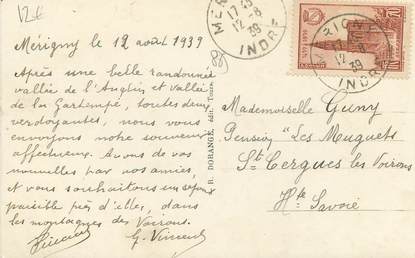 12€
Mérigny le 12 août 1939
Après une belle randonnée
vallée de l'Anglin et vallée
de la Gartempe, toutes deux
verdoyantes, nous vous
envoyons notre souvenir
affectueux. Avons de vos
nouvelles par vos amies,
et vous souhaitons un séjour
paisible près d'elles, dans
les montagnes des Voirons.
G. Vincent
R. DORANGE, édit. Tours
MÉRIGNY
17 45
12 -8
39
INDRE
RIGNY
12 -8
39
INDRE
Mademoiselle Guny
Pension "Les Muguets"
St Cergues les Voirons
Hte Savoie